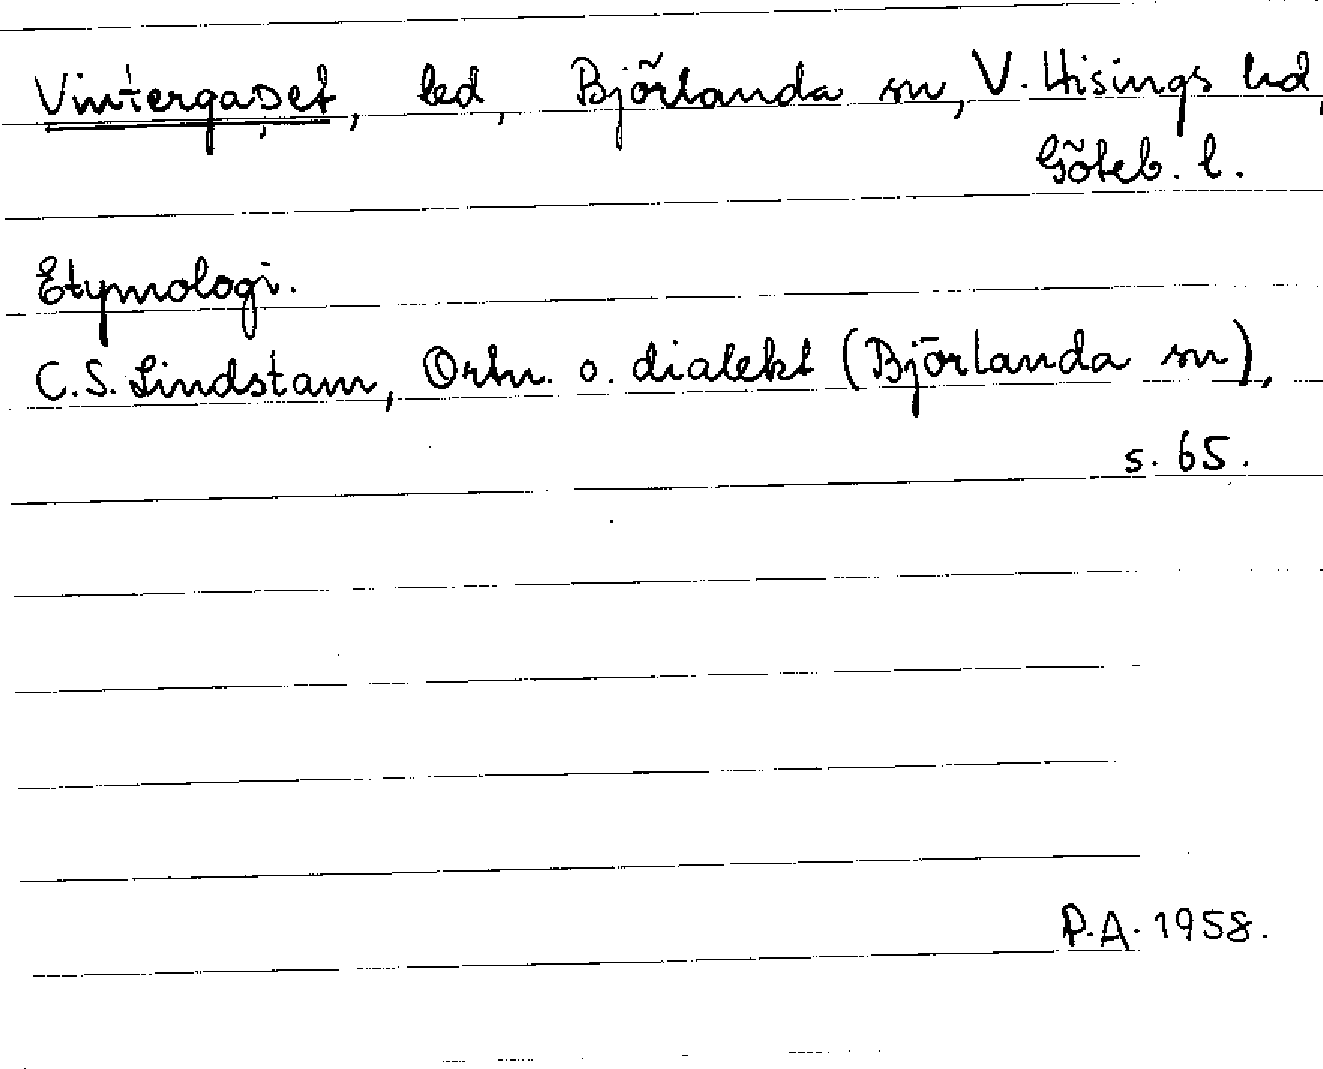 Vintergapet, led, Björlanda sn, V. Hisings hd,
Göteb. l.
Etymologi.
C.S. Lindstam, Ortn. o. dialekt (Björlanda sn),
s. 65.
P.A. 1958.